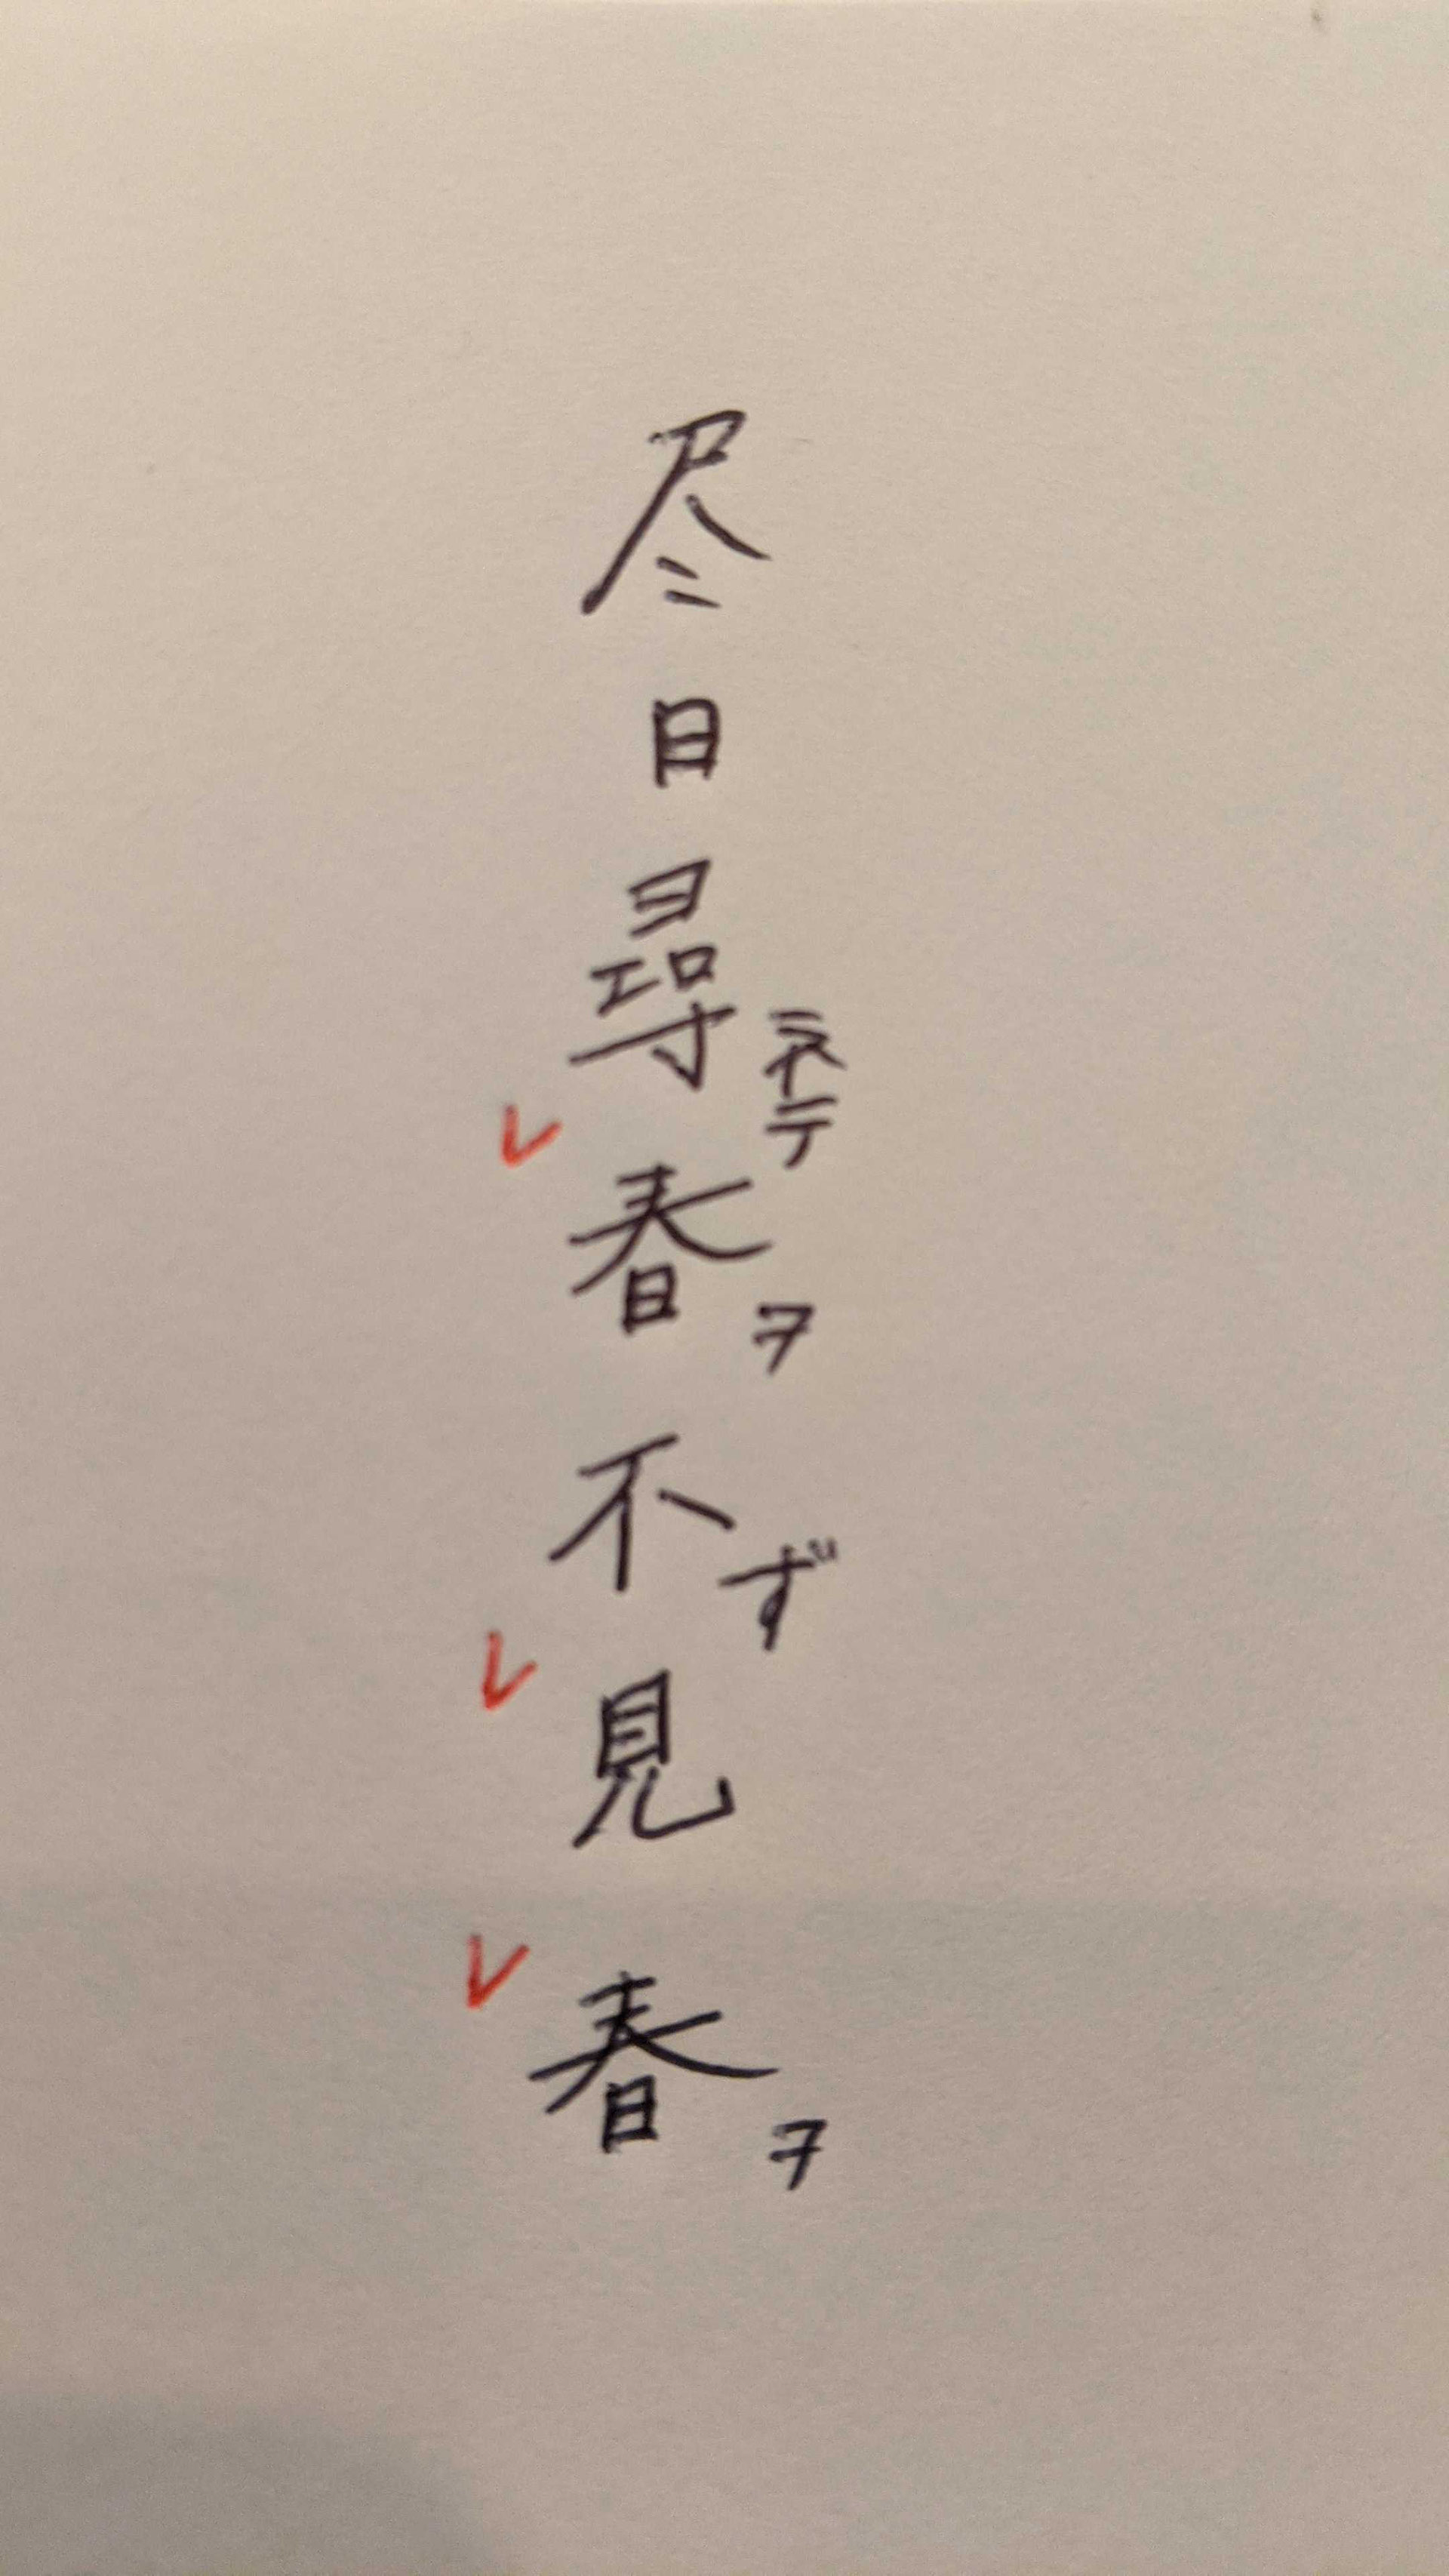 尽日尋ネテレ春ヲ不ずレ見レ春ヲ